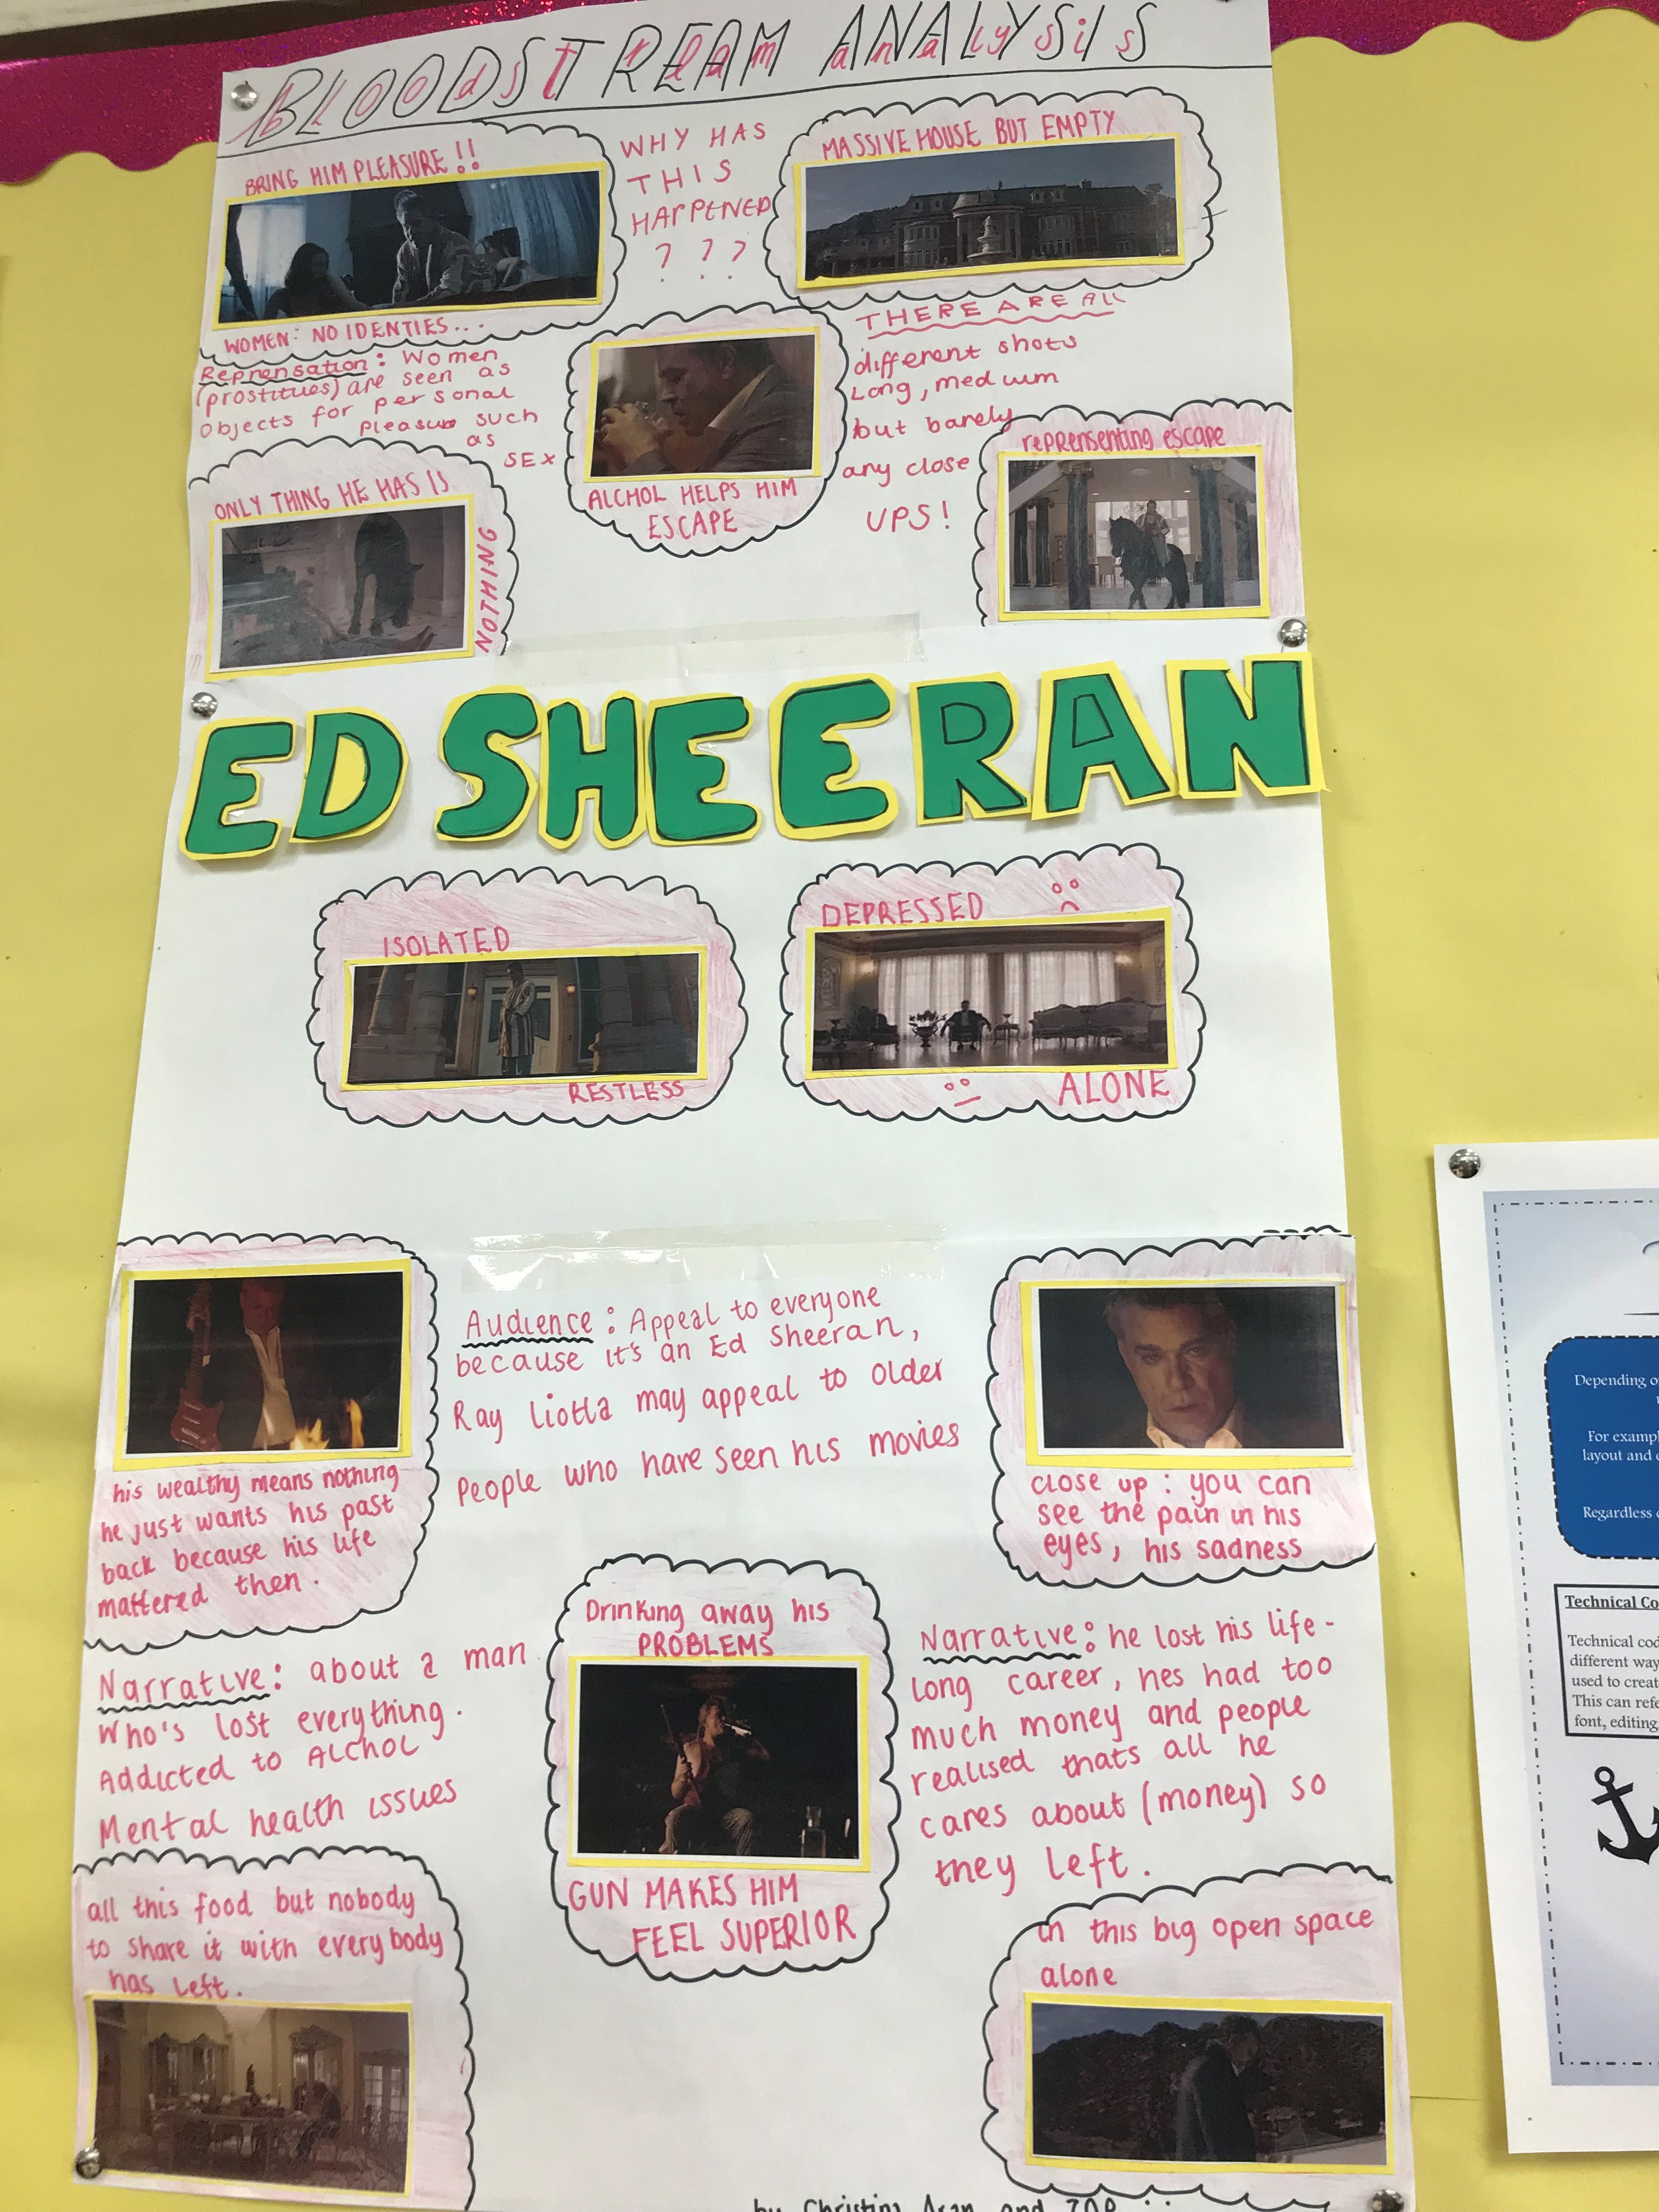 BLOODSTREAM ANALYSIS
BRING HIM PLEASURE !!
WOMEN: NO IDENTIES...
WHY HAS
THIS
HAPPENED
? ? ?
MASSIVE HOUSE BUT EMPTY
Reprensation: Women
(prostitues) are seen as
objects for personal
pleasure such
as
SEX
ALCHOL HELPS HIM
ESCAPE
THERE ARE ALL
different shots
Long, medium
but barely
any close
UPS!
reprensenting escape
ONLY THING HE HAS IS
NOTHING
ED SHEERAN
ISOLATED
RESTLESS
DEPRESSED
ALONE
his wealthy means nothing
he just wants his past
back because his life
mattered then.
Audience: Appeal to everyone
because it's an Ed Sheeran,
Ray Liotta may appeal to older
People who have seen his movies
close up: you can
see the pain in his
eyes, his sadness
Narrative: about a man
Who's lost everything.
Addicted to Alchol
Mental health issues
Drinking away his
PROBLEMS
GUN MAKES HIM
FEEL SUPERIOR
Narrative: he lost his life-
long career, hes had too
much money and people
realised thats all he
cares about (money) so
they left.
all this food but nobody
to share it with every body
has left.
in this big open space
alone
by Christina
and
Depending
For
layout and
Regardless
Technical
Technical
different
used to
This can
font, editing,